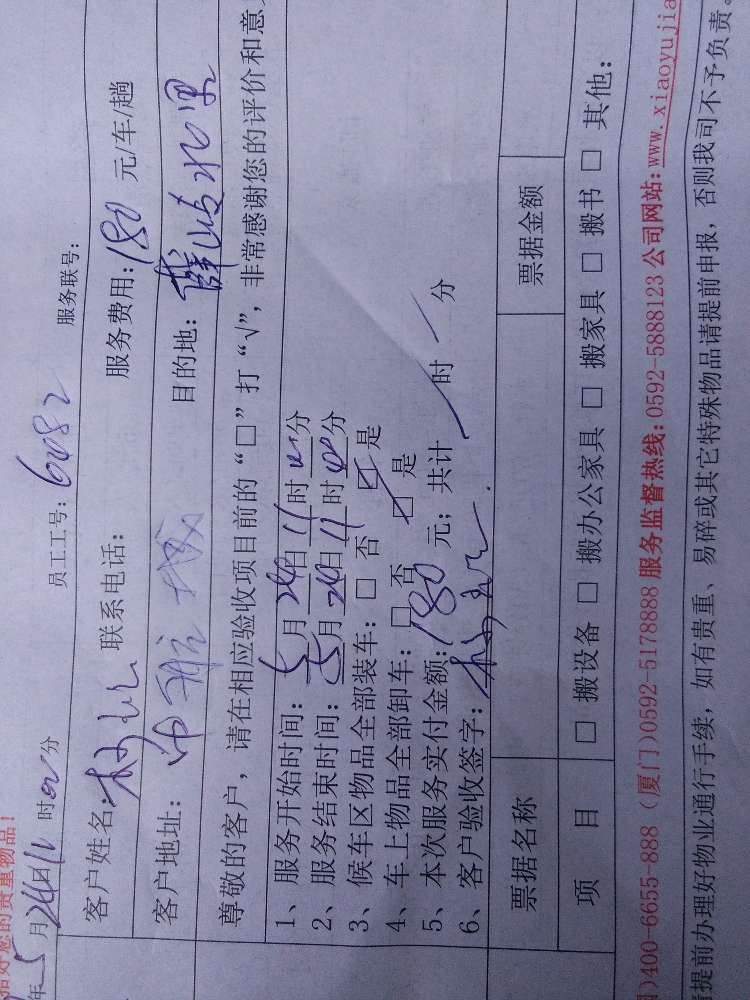 品好您的贵重物品！
年5月24日11时 分 员工工号：6082 服务联号：
客户姓名： 联系电话： 服务费用：180 元/车/趟
客户地址： 目的地：薛岭北里
尊敬的客户，请在相应验收项目前的“□”打“√”，非常感谢您的评价和意
1、服务开始时间：5月24日11时 分
2、服务结束时间：5月24日11时 分
3、候车区物品全部装车：□ 否 ☑ 是
4、车上物品全部卸车：□ 否 ☑ 是
5、本次服务实付金额：180 元；共计 时 分
6、客户验收签字：
票据名称 票据金额
项 目 □ 搬设备 □ 搬办公家具 □ 搬家具 □ 搬书 □ 其他：
)400-6655-888 (厦门)0592-5178888 服务监督热线：0592-5888123 公司网站：www.xiaoyujia
提前办理好物业通行手续，如有贵重、易碎或其它特殊物品请提前申报，否则我司不予负责。